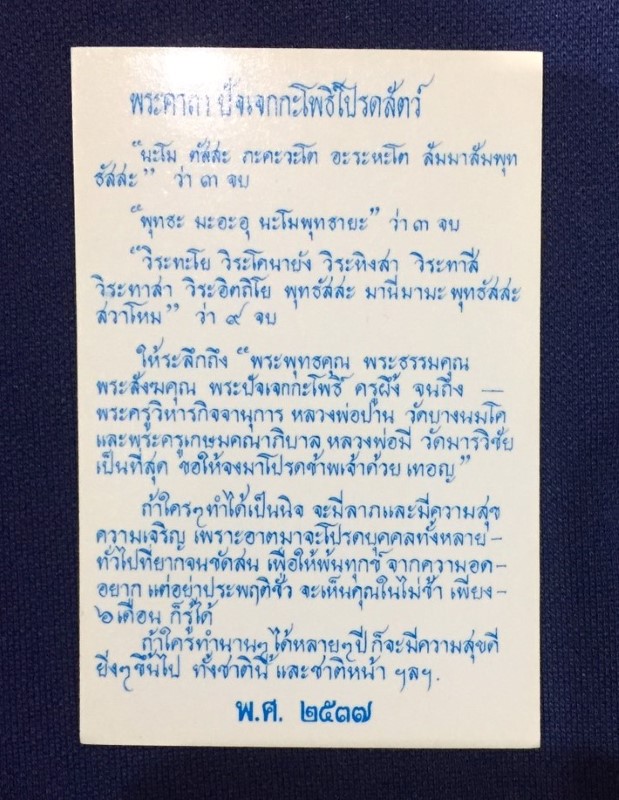 พระคาถา ปัจเจกกะโพธิโปรดสัตว์
"นะโม ตัสสะ ภะคะวะโต อะระหะโต สัมมาสัมพุท
ธัสสะ" ว่า ๓ จบ
"พุทธะ มะอะอุ นะโมพุทธายะ" ว่า ๓ จบ
"วิระทะโย วิระโคนายัง วิระหิงสา วิระทาสี
วิระทาสา วิระอิตถิโย พุทธัสสะ มานีมามะ พุทธัสสะ
สวาโหม" ว่า ๙ จบ
ให้ระลึกถึง "พระพุทธคุณ พระธรรมคุณ
พระสังฆคุณ พระปัจเจกกะโพธิ์ ครูผึ้ง จนถึง —
พระครูวิหารกิจจานุการ หลวงพ่อปาน วัดบางนมโค
และพระครูเกษมคณาภิบาล หลวงพ่อมี วัดมารวิชัย
เป็นที่สุด ขอให้จงมาโปรดข้าพเจ้าด้วย เทอญ"
ถ้าใครๆทำได้เป็นนิจ จะมีลาภและมีความสุข
ความเจริญ เพราะอาตมาจะโปรดบุคคลทั้งหลาย -
ทั่วไปที่ยากจนขัดสน เพื่อให้พ้นทุกข์ จากความอด -
อยาก แต่อย่าประพฤติชั่ว จะเห็นคุณในไม่ช้า เพียง -
๖ เดือน ก็รู้ได้
ถ้าใครทำนานๆ ได้หลายๆปี ก็จะมีความสุขดี
ยิ่งๆขึ้นไป ทั้งชาตินี้ และชาติหน้า ฯลฯ.
พ.ศ. ๒๕๓๗